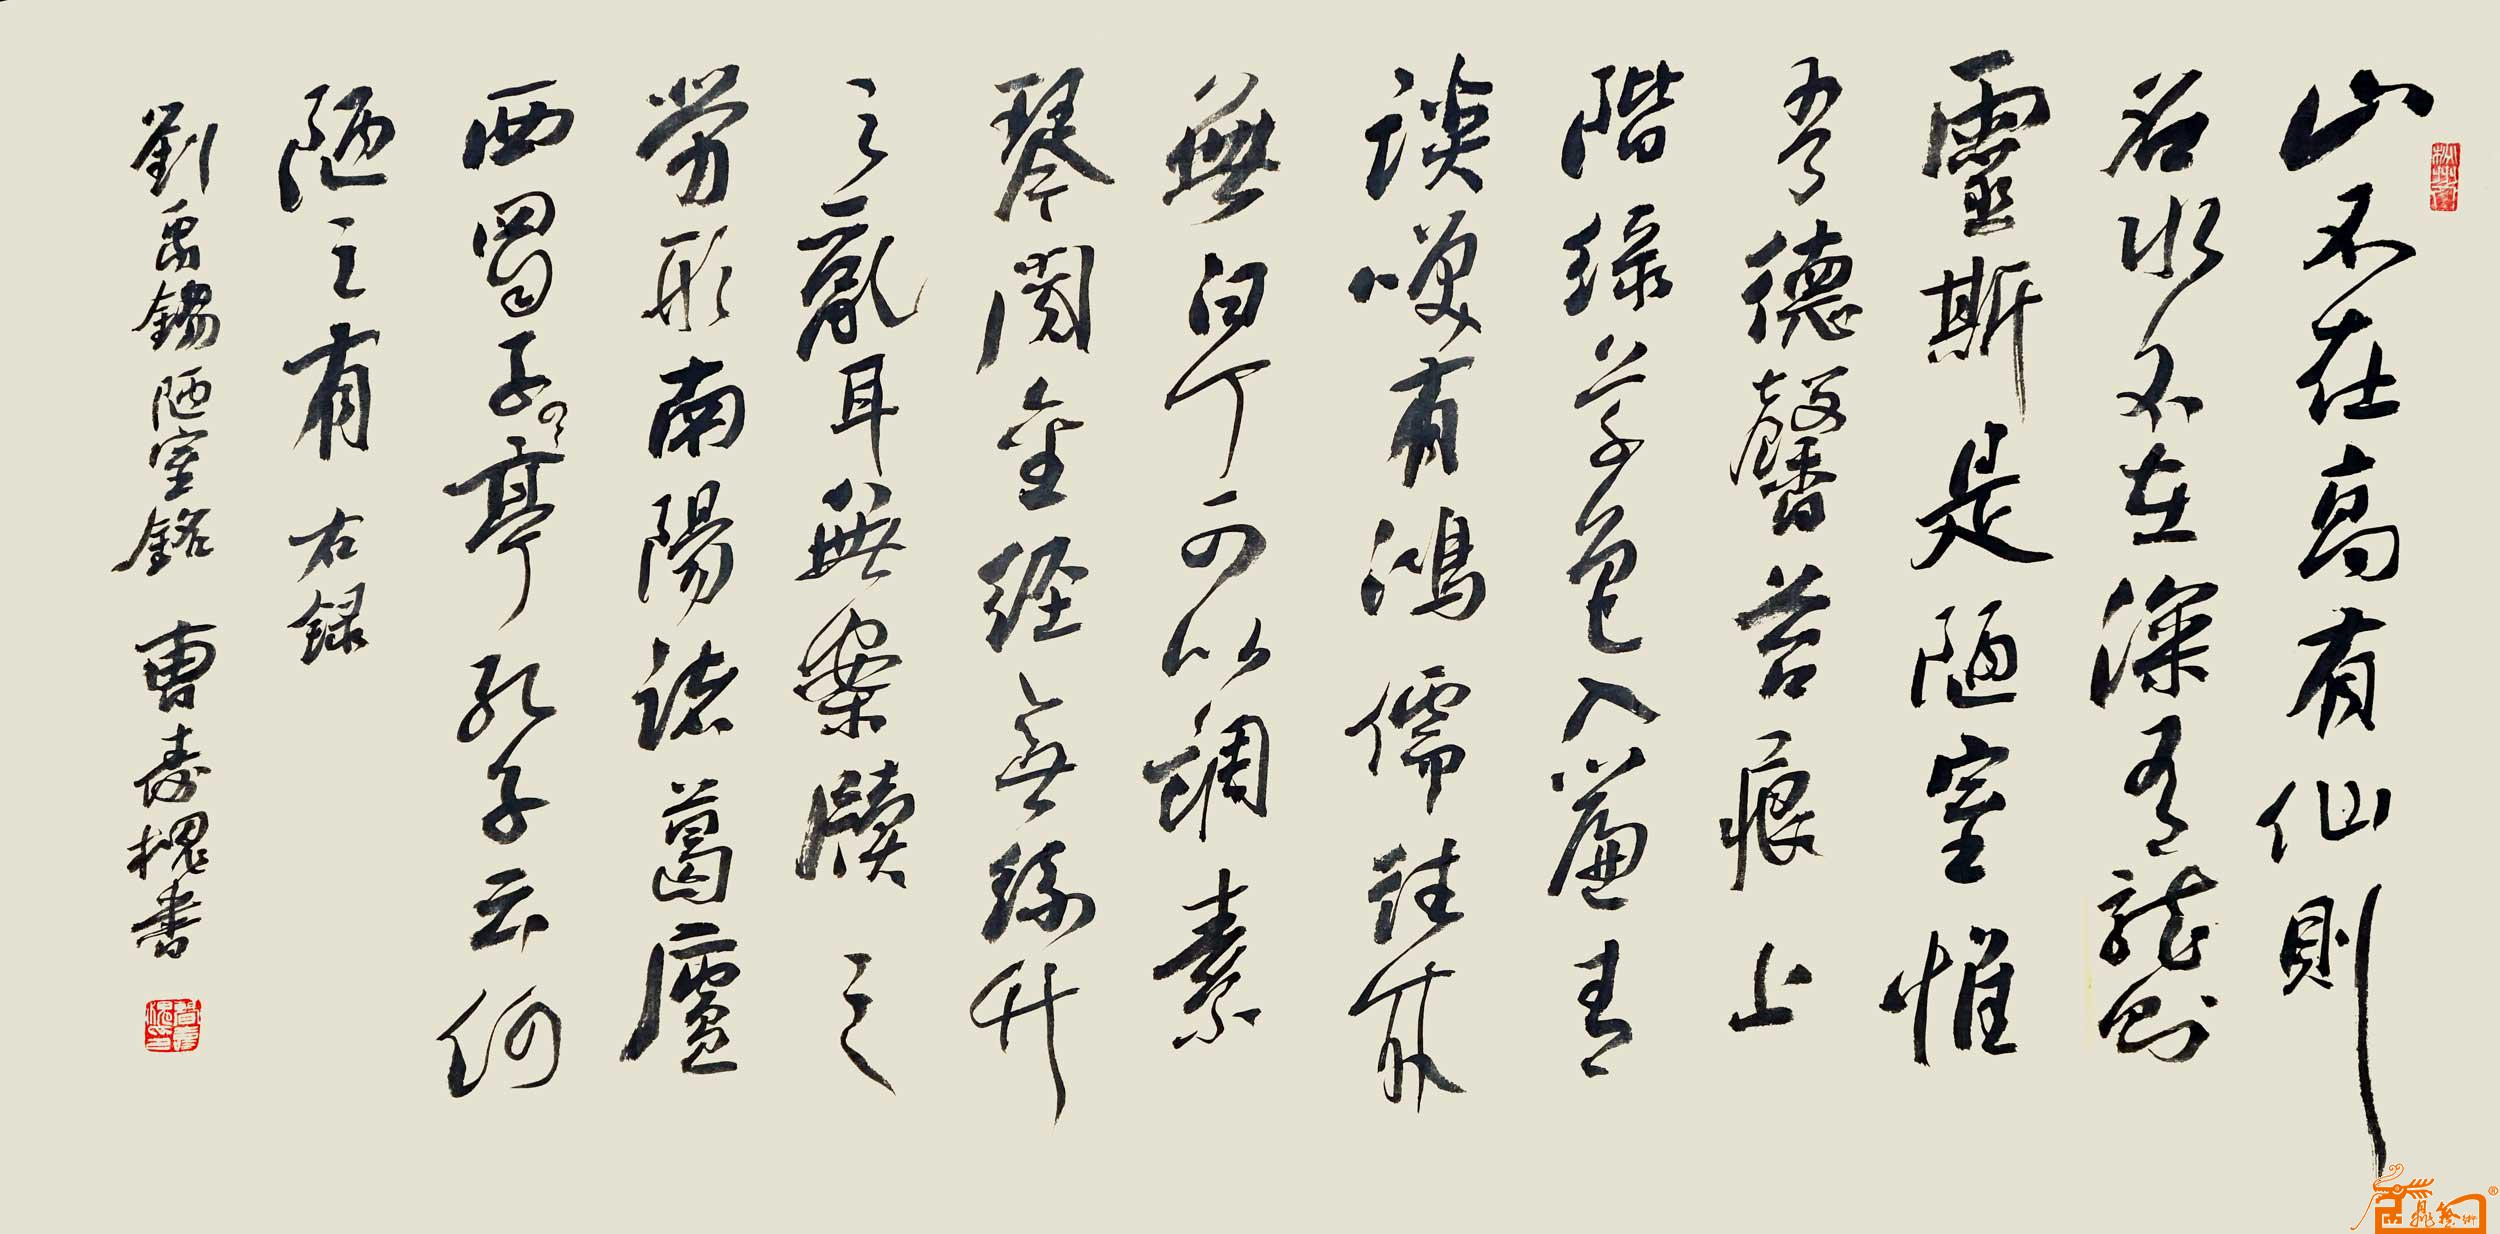 山不在高有仙則
名水不在深有龍則
靈斯是陋室惟
吾德馨苔痕上
階緑草色入簾青
談笑有鴻儒往來
無白丁可以調素
琴閱金經無絲竹
之亂耳無案牘之
勞形南陽諸葛廬
西蜀子云亭孔子云何
陋之有 右録
劉禹錫陋室銘 曹寿槐書